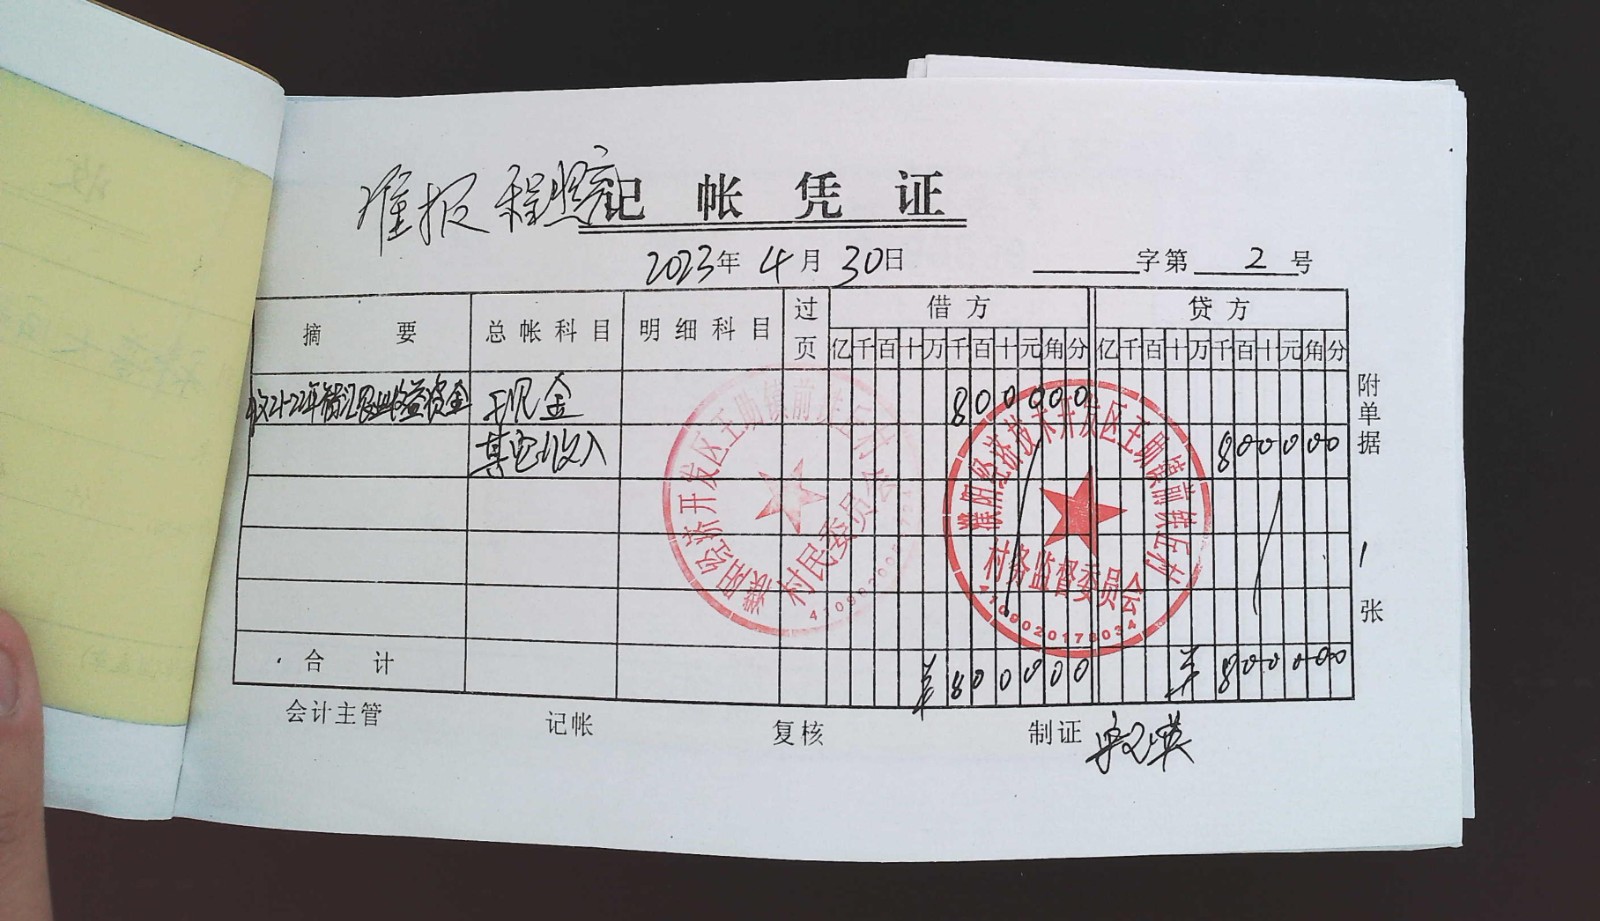 准报 程照亮
记帐凭证
2023年 4月 30日 字第 2 号
摘要 总帐科目 明细科目 过页 借方 贷方
亿千百十万千百十元角分 亿千百十万千百十元角分
现金 800000
其它收入 800000
合计 ¥800000 ¥800000
附单据 1 张
会计主管 记帐 复核 制证
濮阳经济开发区王助镇前铁丘村
村民委员会
濮阳经济技术开发区王助镇前铁丘村
村务监督委员会
4109020178034
收